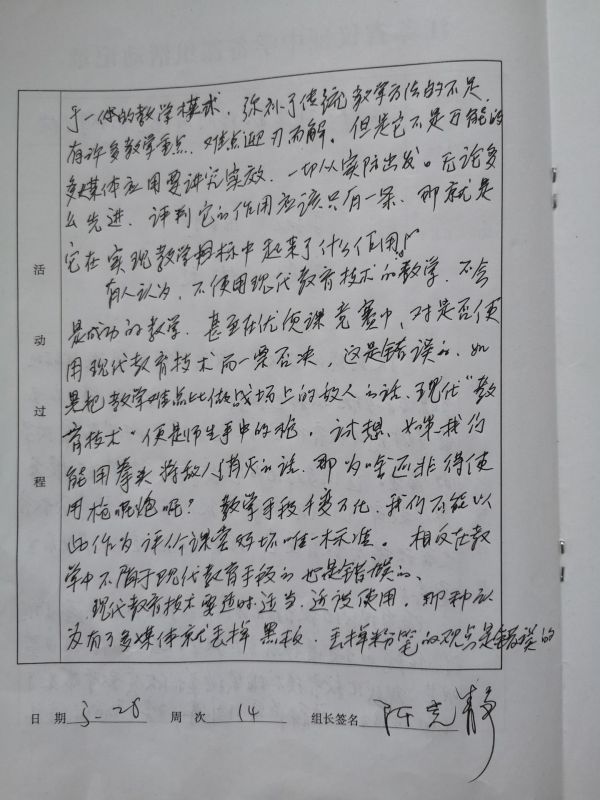 于一体的教学模式，弥补了传统教学方法的不足，
有许多教学重点、难点迎刃而解。但是它不是万能的
多媒体应用要讲究实效，一切从实际出发。无论多
么先进，评判它的作用应该只有一条，那就是
它在实现教学目标中起来了什么作用。
有人认为，不使用现代教育技术的教学，不会
是成功的教学。甚至在优质课竞赛中，对是否使
用现代教育技术而一票否决，这是错误的。如
果把教学难点比做战场上的敌人的话，现代“教
育技术”便是师生手中的枪。试想，如果我们
能用拳头将敌人消灭的话，那为啥还非得使
用枪呢炮呢？教学手段千变万化，我们不能以
此作为评价课堂好坏唯一标准。相反在教
学中不屑于现代教育手段的也是错误的。
现代教育技术要适时、适当、适度使用，那种认
为有了多媒体就丢掉黑板，丢掉粉笔的观点是错误的
活动过程
日期 5-28 周次 14 组长签名 克静